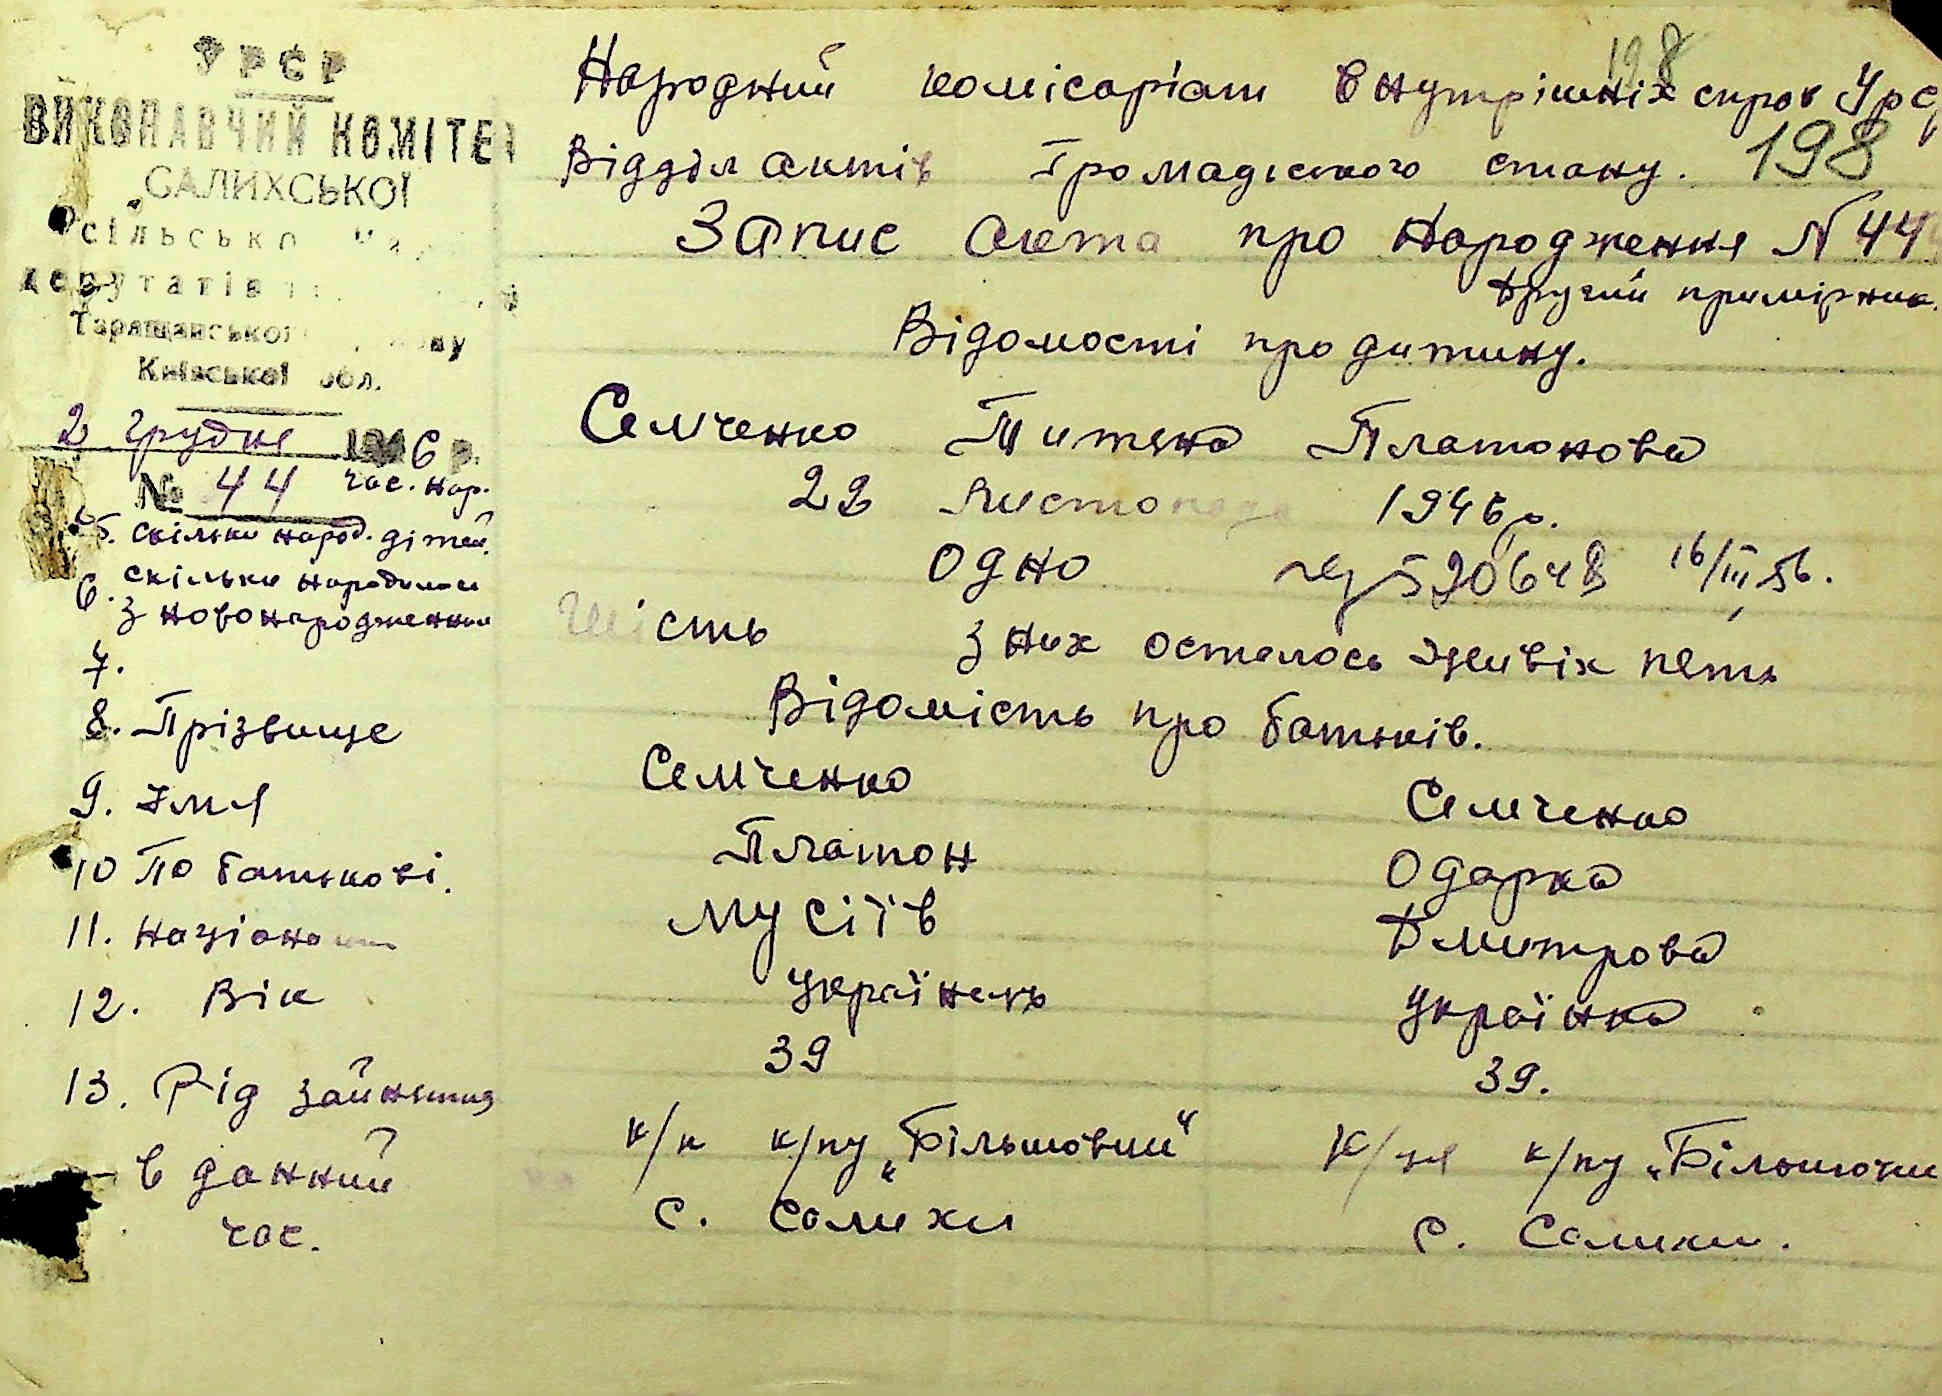 УРСР
ВИКОНАВЧИЙ КОМІТЕТ
САЛИХСЬКОЇ
сільської
депутатів
Таращанського
Київської обл.
2 грудня 1946 р.
№ 44 час. нар.
5. скільки народ. дітей.
6. скільки народилось
з новонародженним
7.
8. Прізвище
9. Імя
10 По батькові.
11. Націонал
12. Вік
13. Рід зайняття
в данний
час.
198
Народний комісаріат внутрішніх справ Урср
Відділ актів громадського стану. 198
Запис акта про Народження N 44
Другий примірник.
Відомості про дитину.
Семченко Титяна Платонова
22 листопада 1946 р.
Одно 520648 16/III 56.
Шість з них осталось живіх пять
Відомість про батьків.
Семченко Семченко
Платон Одарка
Мусіїв Дмитрова
Українець Українка
39 39.
к/к к/пу „Більшовик“ К/ця к/пу „Більшовик
с. Салихи с. Салихи.